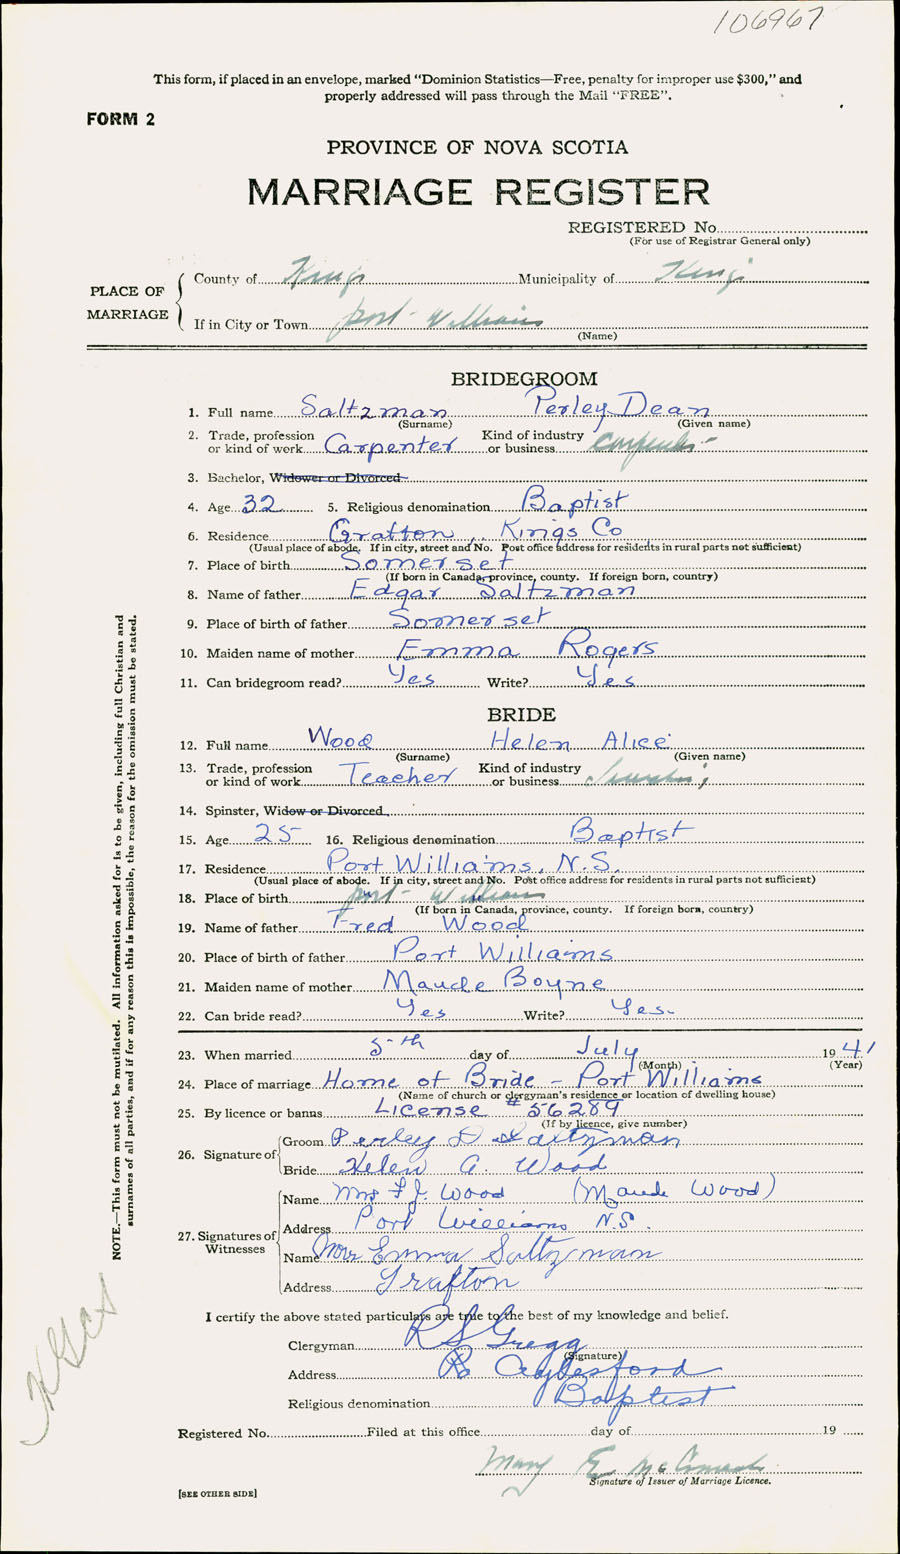 106967
This form, if placed in an envelope, marked “Dominion Statistics—Free, penalty for improper use $300,” and
properly addressed will pass through the Mail “FREE”.
FORM 2
PROVINCE OF NOVA SCOTIA
MARRIAGE REGISTER
REGISTERED No.
(For use of Registrar General only)
PLACE OF MARRIAGE
County of Kings Municipality of Kings
If in City or Town Port Williams
(Name)
BRIDEGROOM
1. Full name Saltzman Perley Dean
(Surname) (Given name)
2. Trade, profession or kind of work Carpenter Kind of industry or business Carpenter
3. Bachelor, Widower or Divorced
4. Age 32 5. Religious denomination Baptist
6. Residence Grafton, Kings Co
(Usual place of abode. If in city, street and No. Post office address for residents in rural parts not sufficient)
7. Place of birth Somerset
(If born in Canada, province, county. If foreign born, country)
8. Name of father Edgar Saltzman
9. Place of birth of father Somerset
10. Maiden name of mother Emma Rogers
11. Can bridegroom read? Yes Write? Yes
BRIDE
12. Full name Wood Helen Alice
(Surname) (Given name)
13. Trade, profession or kind of work Teacher Kind of industry or business
14. Spinster, Widow or Divorced
15. Age 25 16. Religious denomination Baptist
17. Residence Port Williams, N.S.
(Usual place of abode. If in city, street and No. Post office address for residents in rural parts not sufficient)
18. Place of birth Port Williams
(If born in Canada, province, county. If foreign born, country)
19. Name of father Fred Wood
20. Place of birth of father Port Williams
21. Maiden name of mother Maude Boyne
22. Can bride read? Yes Write? Yes.
23. When married 5th day of July 1941
(Month) (Year)
24. Place of marriage Home of Bride - Port Williams
(Name of church or clergyman's residence or location of dwelling house)
25. By licence or banns License #56289
(If by licence, give number)
26. Signature of Groom Perley D Saltzman
Bride Helen A. Wood
27. Signatures of Witnesses
Name Mrs F J. Wood (Maude Wood)
Address Port Williams N.S.
Name Mrs Emma Saltzman
Address Grafton
I certify the above stated particulars are true to the best of my knowledge and belief.
Clergyman R S Gregg
(Signature)
Address Aylesford
Religious denomination Baptist
Registered No. Filed at this office day of 19
Mary E.
Signature of Issuer of Marriage Licence.
[SEE OTHER SIDE]
NOTE.—This form must not be mutilated. All information asked for is to be given, including full Christian and
surnames of all parties, and if for any reason this is impossible, the reason for the omission must be stated.